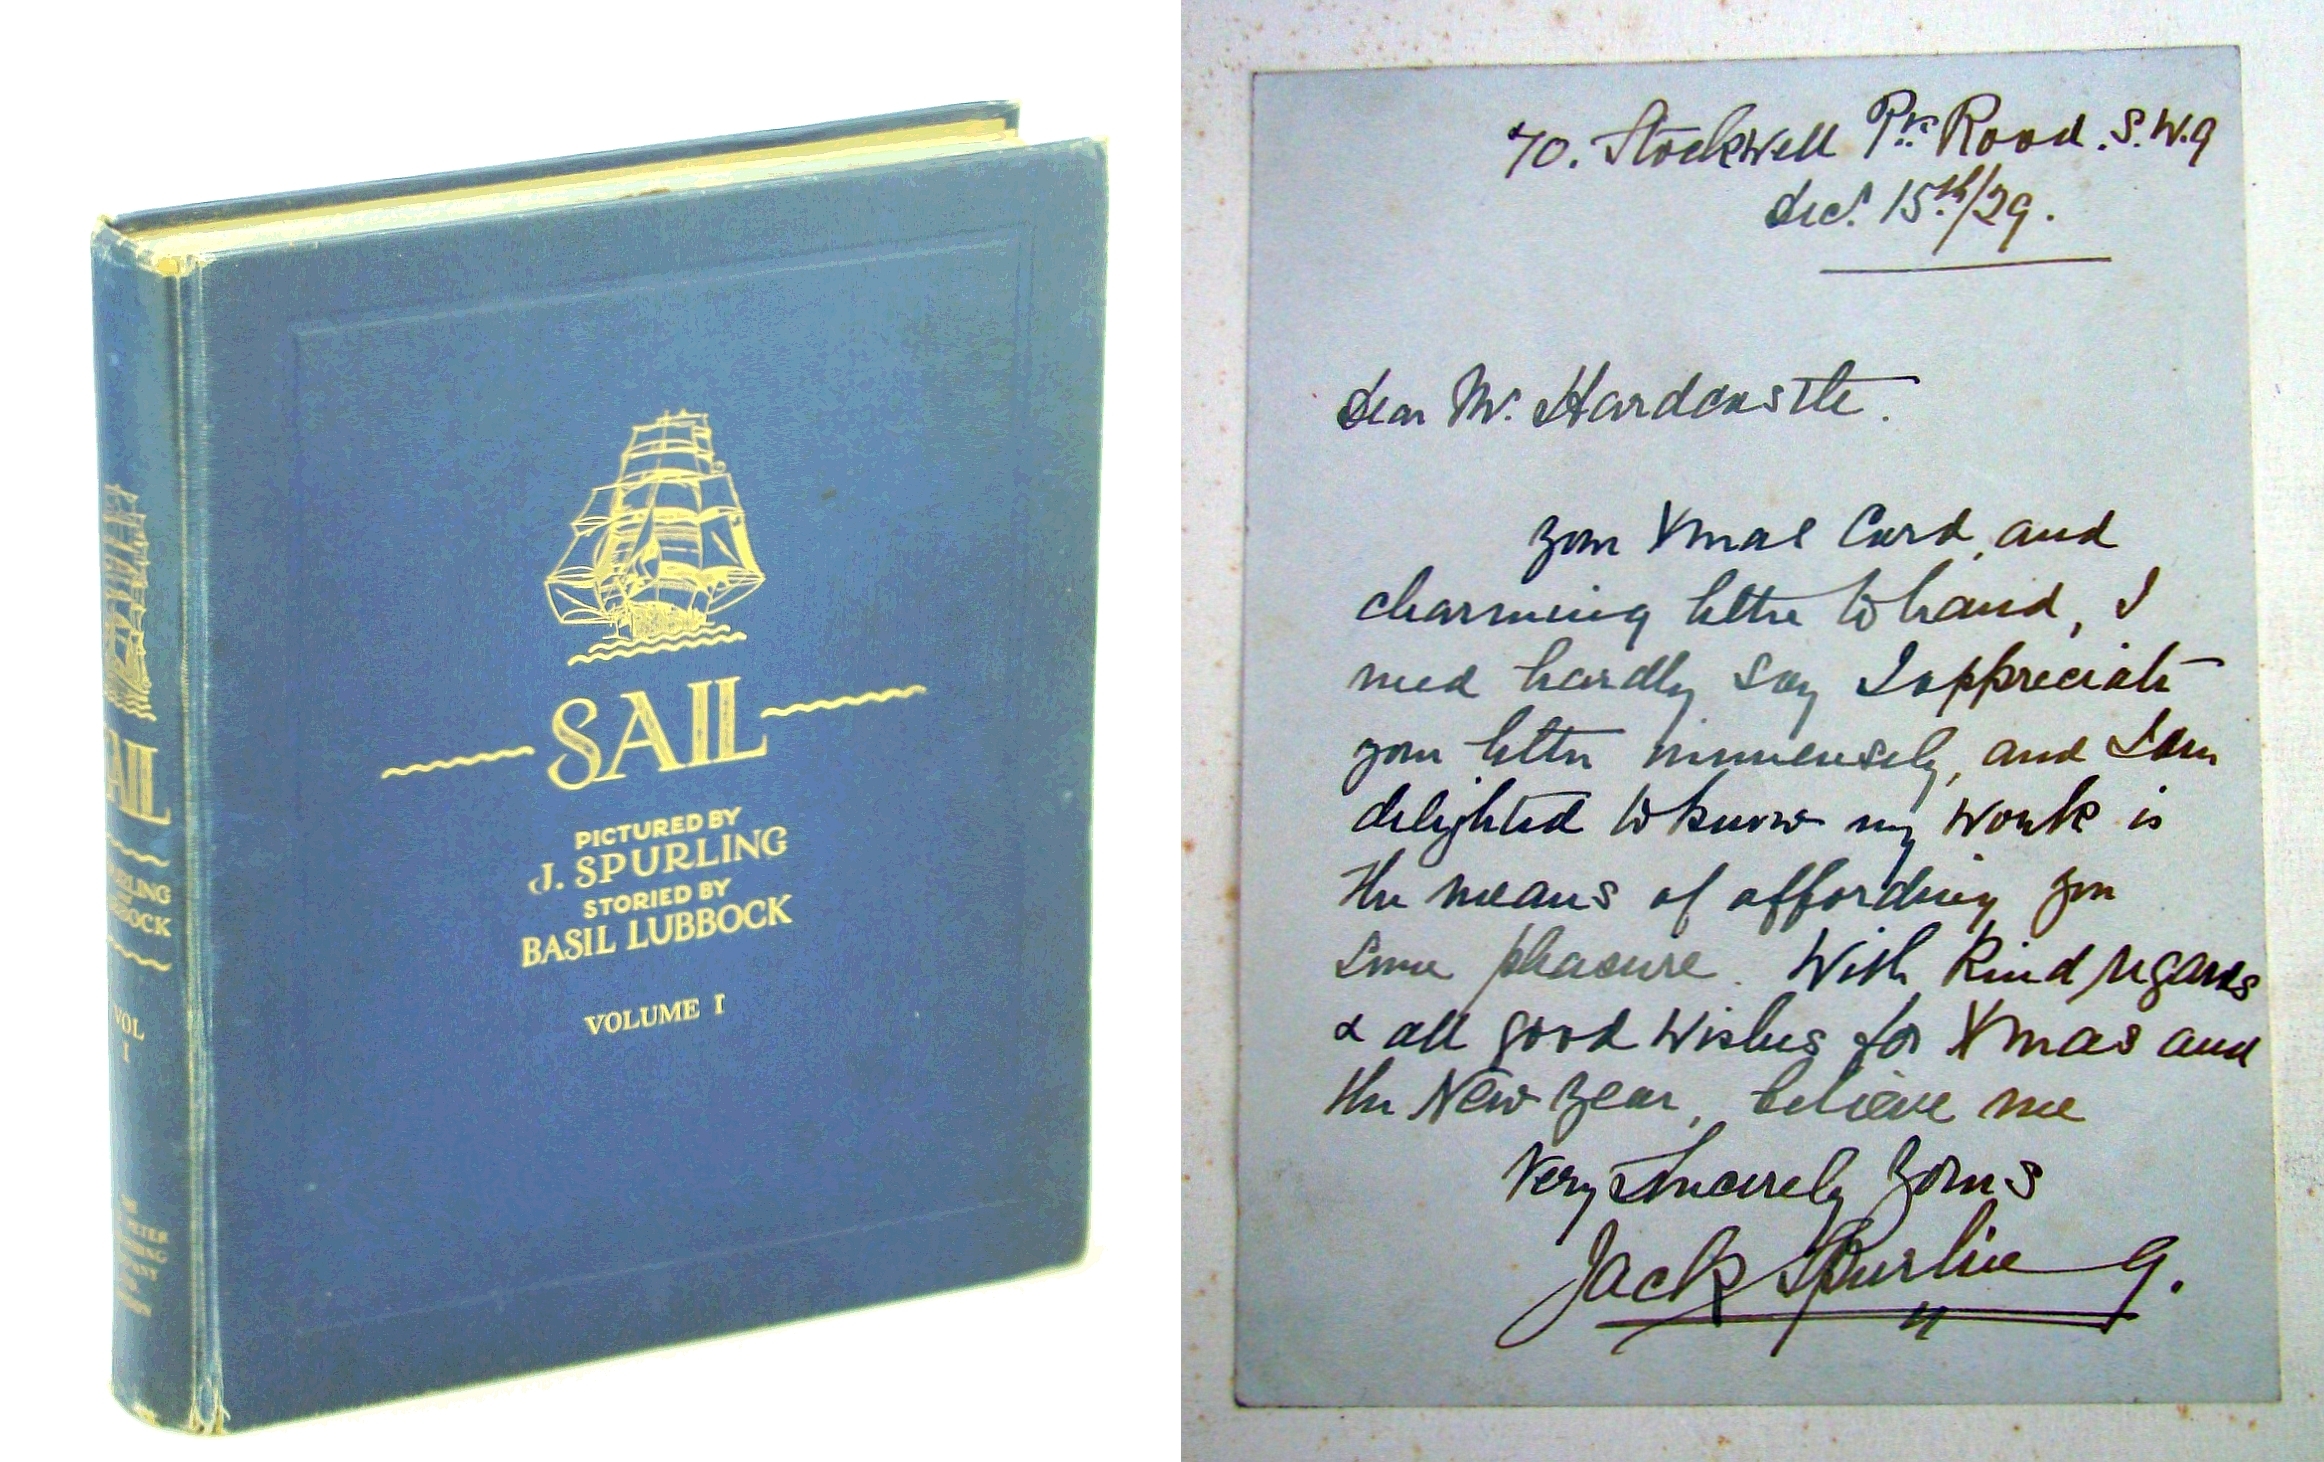 SAIL
PICTURED BY
J. SPURLING
STORIED BY
BASIL LUBBOCK
VOLUME I
AIL
VOL
I
70. Stockwell Pk Road. S.W.9
Dec. 15th/29.
Dear Mr. Hardcastle.
your Xmas Card, and
charming letter to hand, I
need hardly say I appreciate
your letter immensely, and I am
delighted to know my work is
the means of affording you
some pleasure. With Kind regards
& all good wishes for Xmas and
the New Year, believe me
Very Sincerely yours
Jack Spurling.